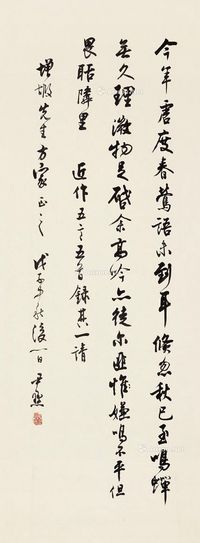 今年虛度春鶯語未到耳倏忽秋已至鳴蟬
無久理微物足啟余高吟亦徒尔匪惟嫌鳴不平但
畏聒隣里 近作五言五首錄其一請
增嘏先生方家正之 戊子立秋後一日 尹默